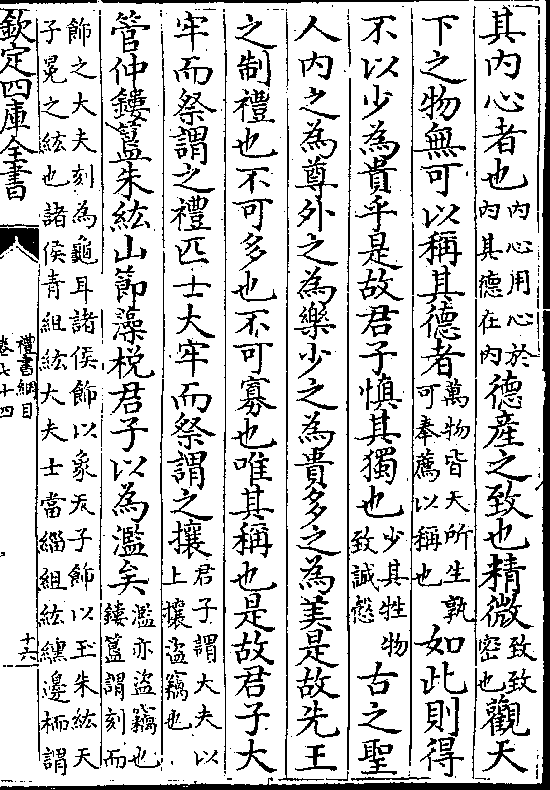 其内心者也内心用心於内其德在内德産之致也精微致致密也觀天
下之物無可以稱其德者萬物皆天所生孰可奉薦以稱也如此則得
不以少為貴乎是故君子慎其獨也少其牲物致誠慤古之聖
人内之為尊外之為樂少之為貴多之為美是故先王
之制禮也不可多也不可寡也唯其稱也是故君子大
牢而祭謂之禮匹士大牢而祭謂之攘君子謂大夫以上攘盜竊也
管仲鏤簋朱紘山節藻梲君子以為濫矣濫亦盜竊也鏤簋謂刻而
飾之大夫刻為龜耳諸侯飾以象天子飾以玉朱紘天
子冕之紘也諸侯青組紘大夫士當緇組紘纁邊栭謂
欽定四庫全書
禮書綱目
卷七十四
十六